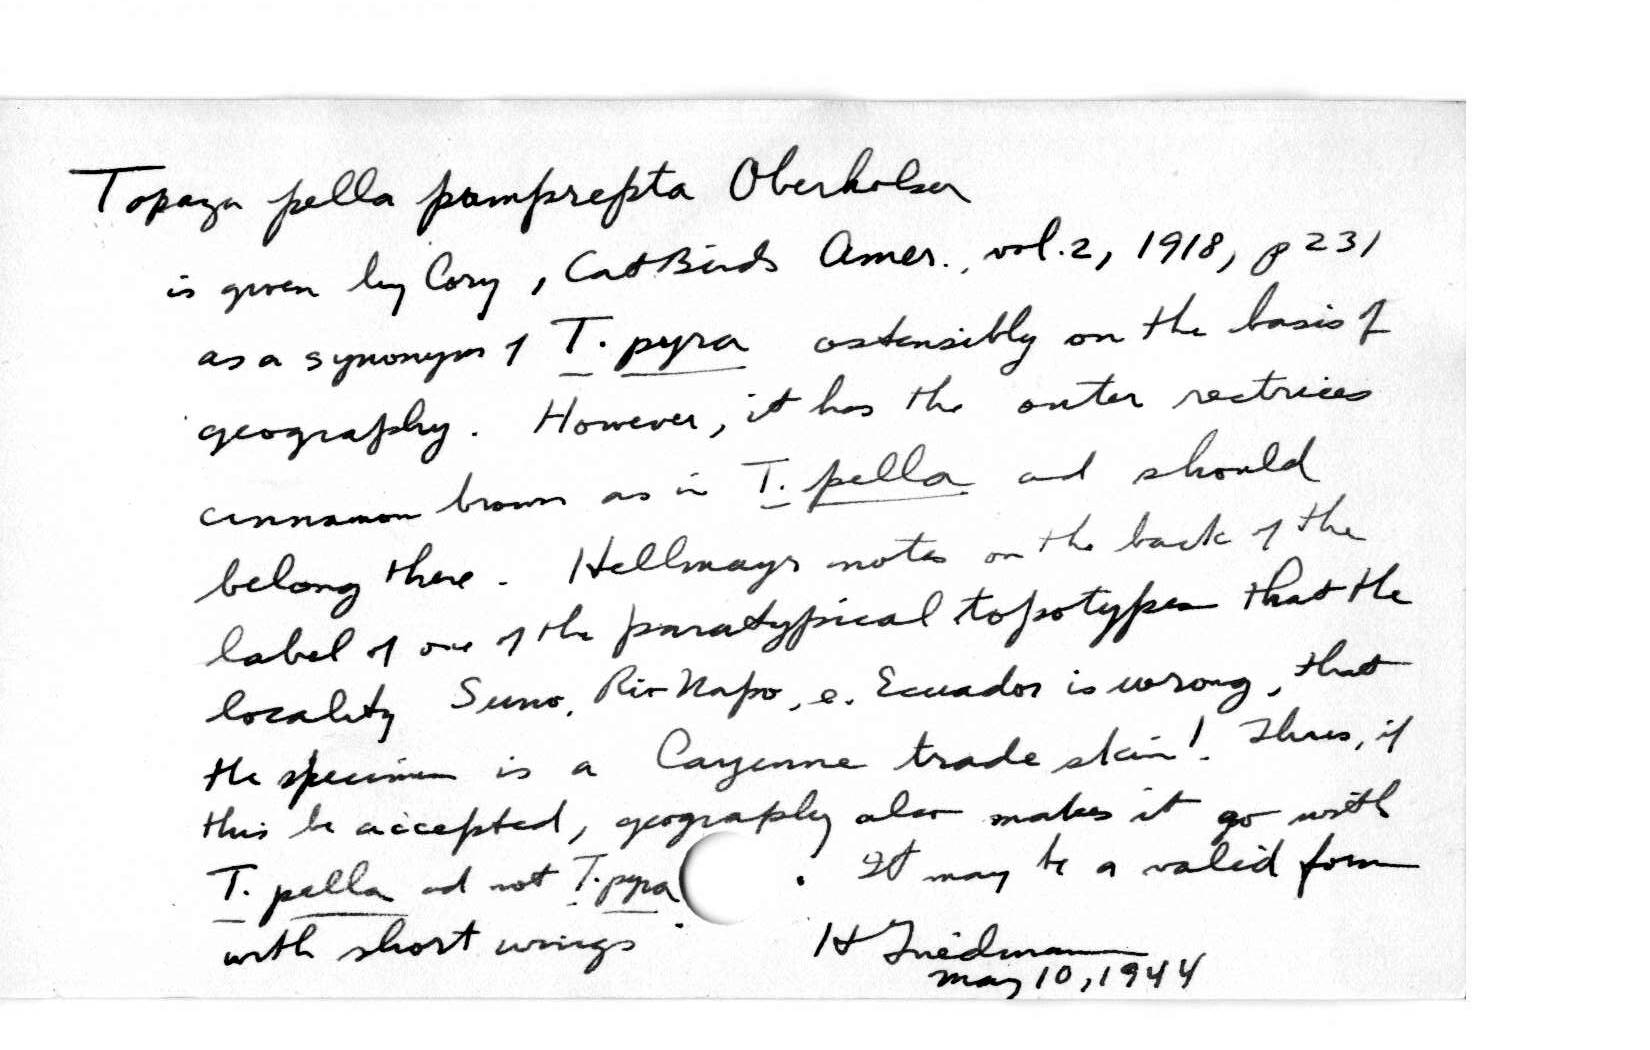 Topaza pella pamprepta Oberholser
is given by Cory, Cat Birds Amer., vol. 2, 1918, p 231
as a synonym of T. pyra ostensibly on the basis of
geography. However, it has the outer rectrices
cinnamon brown as in T. pella and should
belong there. Hellmayr notes on the back of the
label of one of the paratypical topotypes that the
locality Suno, Rio Napo, e. Ecuador is wrong, that
the specimen is a Cayenne trade skin!. Thus, if
this be accepted, geography also makes it go with
T. pella and not T. pyra. It may be a valid form
with short wings
H Friedmann
May 10, 1944